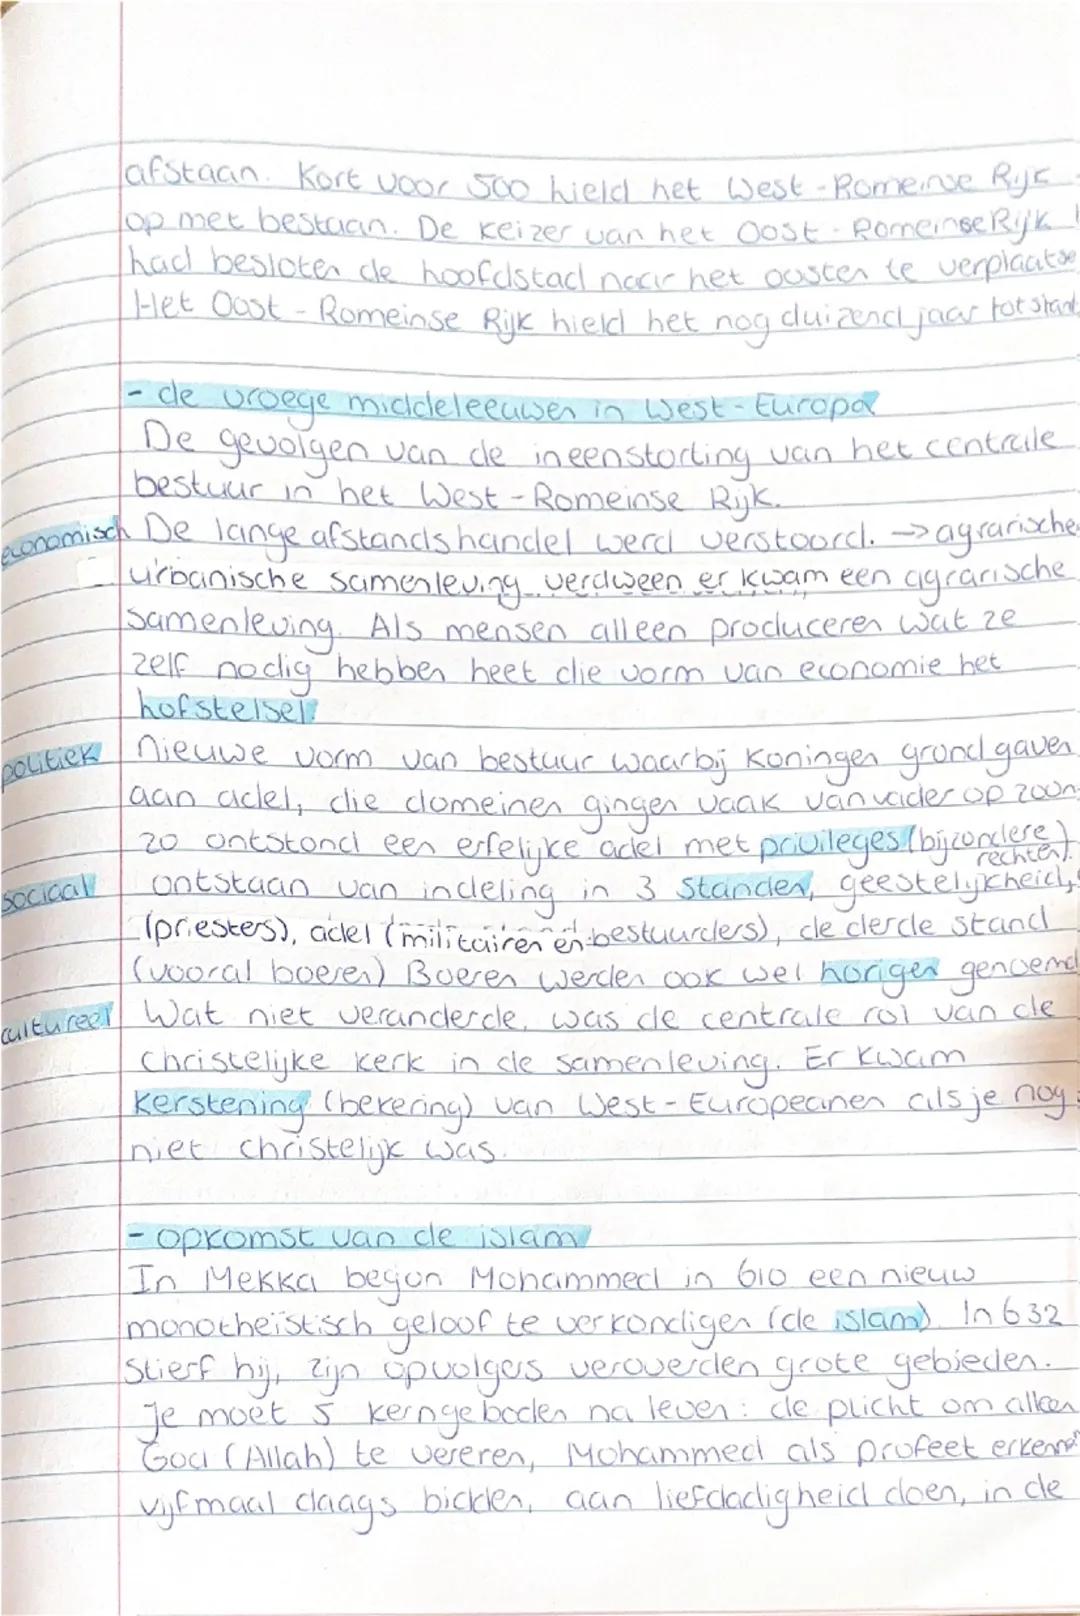 afstaan. Kort voor 500 hield het West-Romeinse Rijk
op met bestaan. De keizer van het Oost-Romeinse Rijk
had besloten de hoofdstad naar het oosten te verplaatse
Het Oost-Romeinse Rijk hield het nog duizend jaar tot stand
- de vroege middeleeuwen in West-Europa
De gevolgen van de ineenstorting van het centrale
bestuur in het West-Romeinse Rijk.
economisch De lange afstandshandel werd verstoord. → agrarische
urbanische samenleving verdween er kwam een agrarische
samenleving. Als mensen alleen produceren wat ze
zelf nodig hebben heet die vorm van economie het
hofstelsel.
politiek Nieuwe vorm van bestuur waarbij koningen grond gaven
aan adel, die domeinen gingen vaak van vader op zoon
zo ontstond een erfelijke adel met privileges (bijzondere rechten).
sociaal ontstaan van indeling in 3 standen, geestelijkheid,
(priesters), adel (militairen en bestuurders), de derde stand
(vooral boeren) Boeren werden ook wel horigen genoemd
cultureel Wat niet veranderde, was de centrale rol van de
christelijke kerk in de samenleving. Er kwam
kerstening (bekering) van West-Europeanen als je nog
niet christelijk was.
- opkomst van de islam
In Mekka begon Mohammed in 610 een nieuw
monotheïstisch geloof te verkondigen (de islam). In 632
stierf hij, zijn opvolgers veroverden grote gebieden.
Je moet 5 kerngeboden na leven: de plicht om alleen
God (Allah) te vereren, Mohammed als profeet erkennen
vijfmaal daags bidden, aan liefdadigheid doen, in de